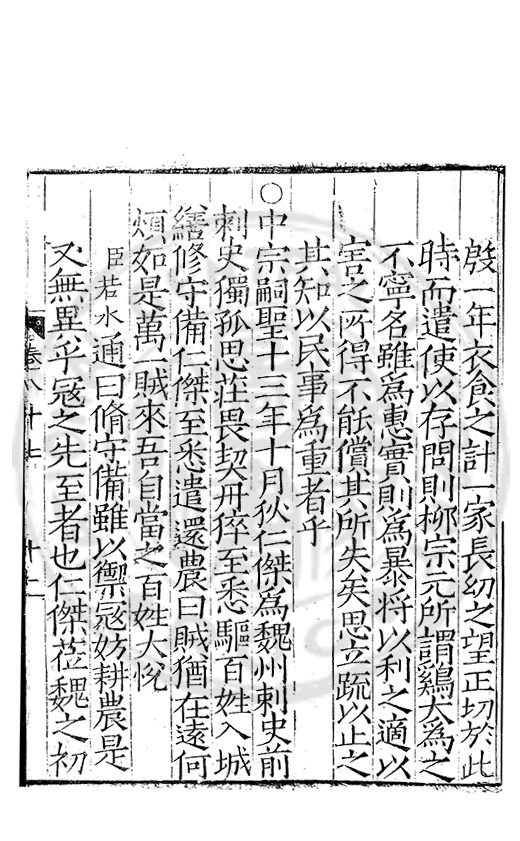 殷一年衣食之計一家長幼之望正切於此
時而遣使以存問則柳宗元所謂雞犬為之
不寧名雖為惠實則為暴將以利之適以
害之所得不能償其所失矣思立疏以止之
其知以民事為重者乎
○中宗嗣聖十三年十月狄仁傑為魏州刺史前
刺史獨孤思莊畏契丹猝至悉驅百姓入城
繕修守備仁傑至悉遣還農曰賊猶在遠何
煩如是萬一賊來吾自當之百姓大悅
臣若水通曰脩守備雖以禦寇妨耕農是
又無異乎寇之先至者也仁傑蒞魏之初